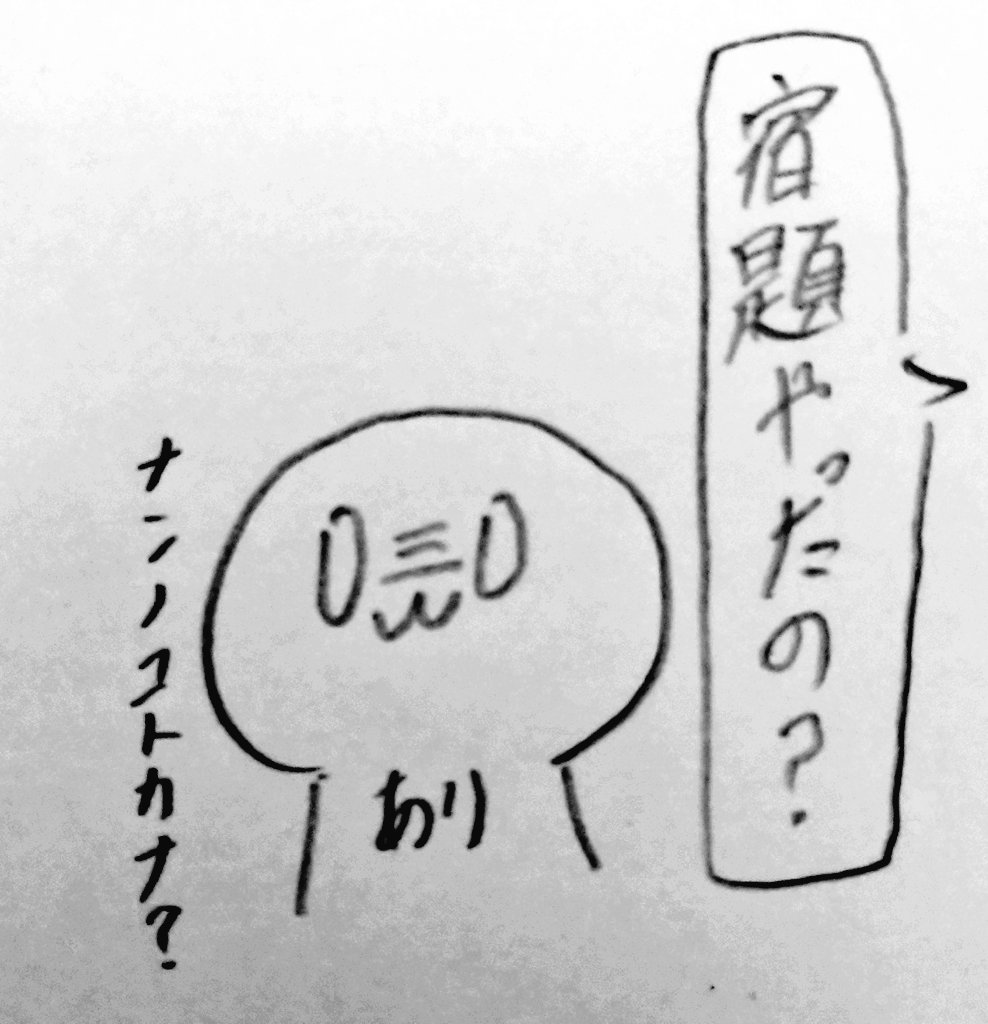 宿題やったの?
あり
ナンノコトカナ?